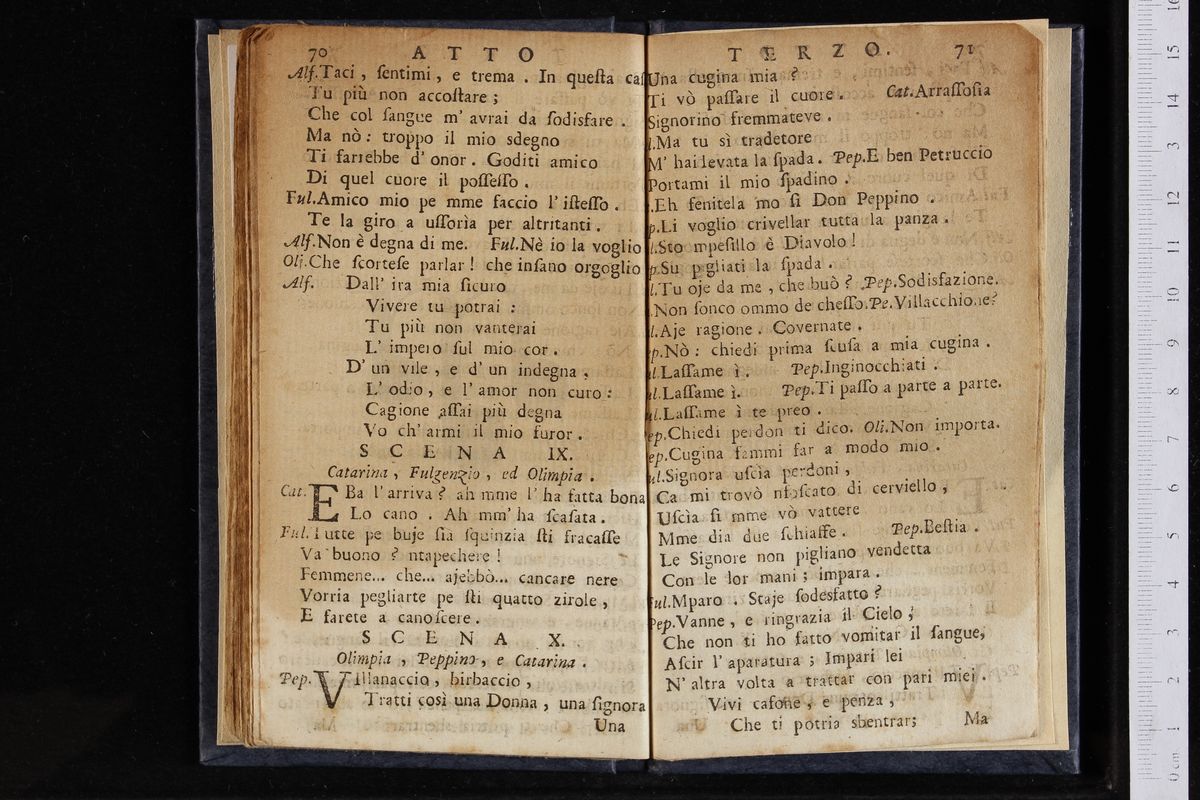 70 ATTO
Alf.Taci, ſentimi, e trema. In queſta caſ
Tu più non accoſtare;
Che col ſangue m' avrai da ſodisfare.
Ma nò: troppo il mio sdegno
Ti farrebbe d' onor. Goditi amico
Di quel cuore il poſſeſſo.
Ful.Amico mio pe mme faccio l' iſteſſo.
Te la giro a uſſorìa per altritanti.
Alf.Non è degna di me. Ful.Nè io la voglio
Oli.Che ſcorteſe parlar! che inſano orgoglio
Alf. Dall' ira mia ſicuro
Vivere tu potrai:
Tu più non vanterai
L' impero ſul mio cor.
D' un vile, e d' un indegna,
L' odio, e l' amor non curo:
Cagione aſſai più degna
Vo ch' armi il mio furor.
SCENA IX.
Catarina, Fulgenzio, ed Olimpia.
Cat. EBa l' arriva? ah mme l' ha fatta bona
Lo cano. Ah mm' ha ſcaſata.
Ful.Tutte pe buje ſia ſquinzia ſti fracaſſe
Va buono? ntapechere!
Femmene... che... ajebbò... cancare nere
Vorria pegliarte pe ſti quatto zirole,
E farete a canoſcere.
SCENA X.
Olimpia, Peppino, e Catarina.
Pep. VIllanaccio, birbaccio,
Tratti così una Donna, una ſignora
Una
TERZO. 71
Una cugina mia?
Ti vò paſſare il cuore. Cat.Arraſſoſia
Signorino fremmateve.
l.Ma tu sì tradetore
M' hai levata la ſpada. Pep.E ben Petruccio
Portami il mio ſpadino.
.Eh fenitela mo ſi Don Peppino.
p.Li voglio crivellar tutta la panza.
l.Sto mpeſillo è Diavolo!
p.Su pigliati la ſpada.
l.Tu oje da me, che buò? Pep.Sodisfazione.
.Non ſonco ommo de cheſſo.Pe.Villacchione?
l.Aje ragione. Covernate.
ep.Nò: chiedi prima ſcuſa a mia cugina.
ul.Laſſame ì. Pep.Inginocchiati.
ul.Laſſame ì. Pep.Ti paſſo a parte a parte.
ul.Laſſame ì te preo.
ep.Chiedi perdon ti dico. Oli.Non importa.
ep.Cugina fammi far a modo mio.
ul.Signora uſcìa perdoni,
Ca mi trovò nfoſcato di cerviello,
Uſcìa ſi mme vò vattere
Mme dia due ſchiaffe. Pep.Beſtia.
Le Signore non pigliano vendetta
Con le lor mani; impara.
ful.Mparo. Staje ſodesfatto?
Pep.Vanne, e ringrazia il Cielo,
Che non ti ho fatto vomitar il ſangue,
Aſcir l' aparatura; Impari lei
N' altra volta a trattar con pari miei.
Vivi cafone, e penza,
Che ti potria sbentrar; Ma